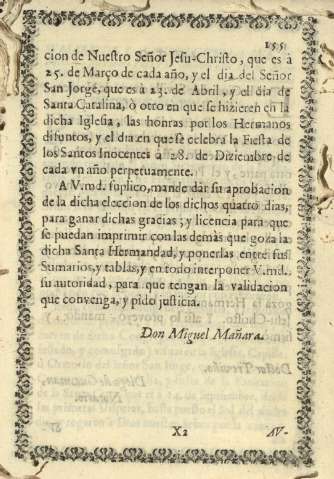 155
cion de Nuestro Señor Jesu-Christo, que es à
25. de Março de cada año, y el dia del Señor
San Jorge, que es à 23. de Abril, y el dia de
Santa Catalina, ò otro en que se hizieren en la
dicha Iglesia, las honras por los Hermanos
difuntos, y el dia en que se celebra la Fiesta de
los Santos Inocentes à 28. de Diziembre de
cada vn año perpetuamente.
A V.md. suplico, mande dàr su aprobacion
de la dicha eleccion de los dichos quatro dias,
para ganar dichas gracias; y licencia para que
se puedan imprimir con las demàs que goza la
dicha Santa Hermandad, y ponerlas entre sus
Sumarios, y tablas, y en todo interponer V.md.
su autoridad, para que tengan la validacion
que convenga, y pido justicia.
Don Miguel Mañara.
X2
AV-